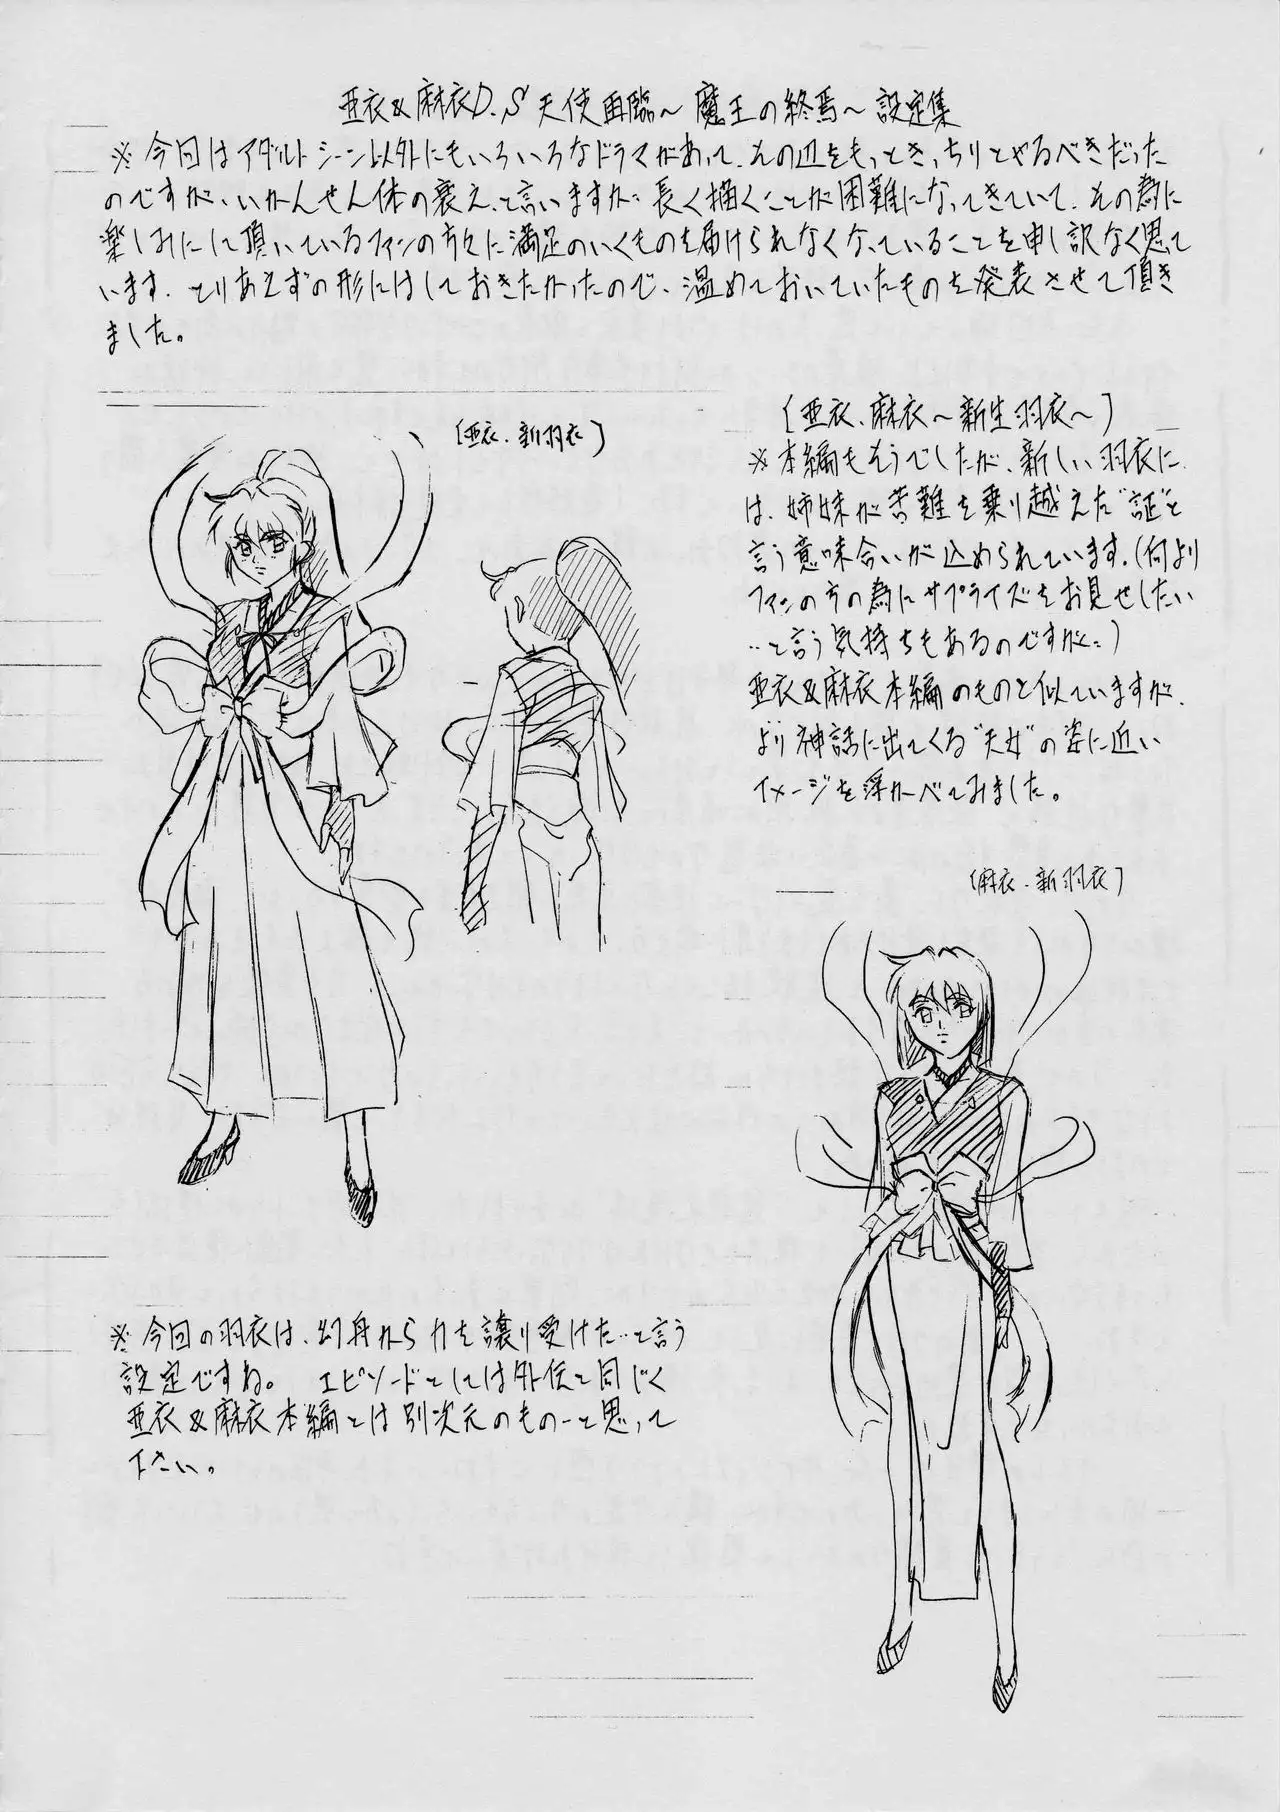 亜衣&麻衣D.S 天使再臨〜魔王の終焉〜設定集
※今回はアダルトシーン以外にもいろいろなドラマがあって、その辺をもっときっちりとやるべきだった
のですが、いかんせん体の衰え、と言いますか…長く描くことが困難になってきていて、その為に
楽しみにして頂いているファンの方々に満足のいくものを届けられなくなっていることを申し訳なく思って
います。とりあえずの形にはしておきたかったので、温めておいていたものを発表させて頂き
ました。
(亜衣・新羽衣)
(亜衣、麻衣〜新生羽衣〜)
※本編もそうでしたが、新しい羽衣に
は、姉妹が苦難を乗り越えた“証”と
言う意味合いが込められています。(何より
ファンの方の為にサプライズをお見せしたい
…と言う気持ちもあるのですが…)
亜衣&麻衣本編のものと似ていますが、
より神話に出てくる“天女”の姿に近い
イメージを浮かべてみました。
(麻衣・新羽衣)
※今回の羽衣は、幻舟から力を譲り受けた…と言う
設定ですね。 エピソードとしては外伝と同じく
亜衣&麻衣本編とは別次元のもの…と思って
下さい。